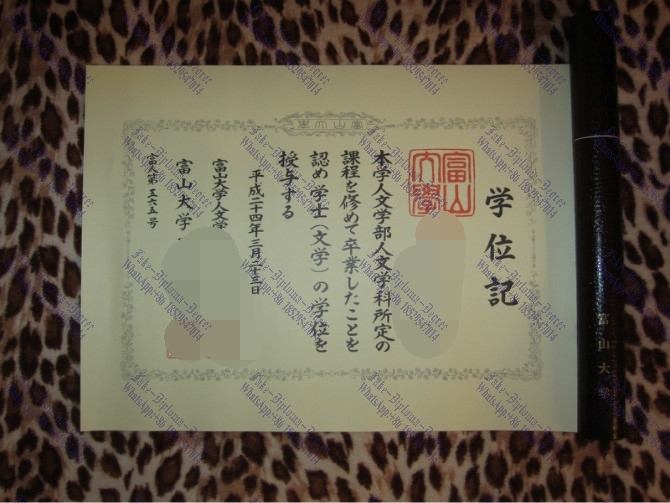 学位記
富山大學
本学人文学部人文学科所定の
課程を修めて卒業したことを
認め学士（文学）の学位を
授与する
平成二十四年三月二十三日
富山大学人文学
富山大学
富人第三六五号
富山大学
富山大学
Fake-Diploma-Degree